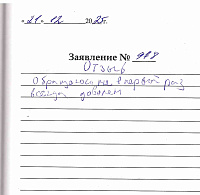 «21» 12 2025г.
Заявление № 988
Отзыв
Обращаюсь не в первый раз
всегда доволен